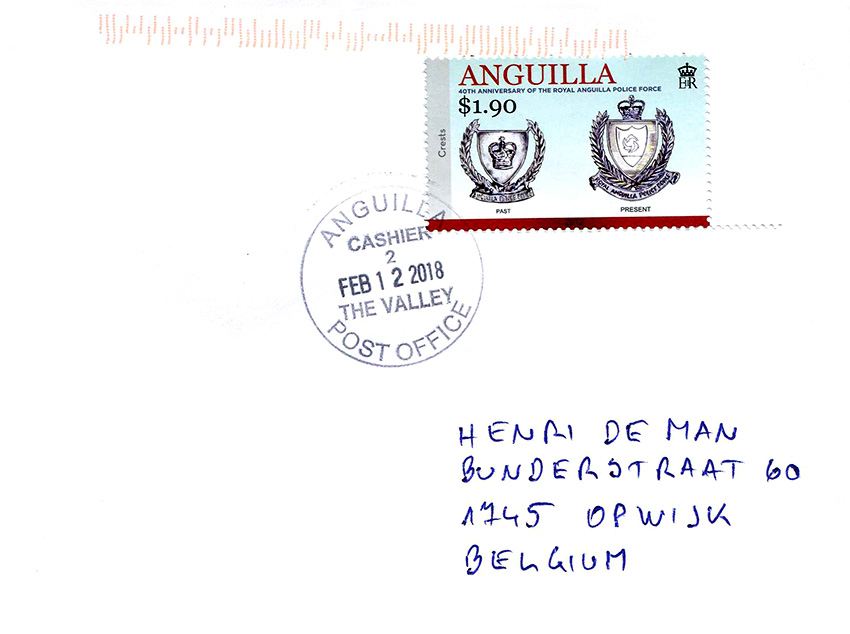 ANGUILLA
40TH ANNIVERSARY OF THE ROYAL ANGUILLA POLICE FORCE
$1.90
EIIR
Crests
ROYAL ANGUILLA POLICE FORCE
PAST
PRESENT
ANGUILLA
CASHIER
2
FEB 12 2018
THE VALLEY
POST OFFICE
HENRI DE MAN
BUNDERSTRAAT 60
1745 OPWIJK
BELGIUM